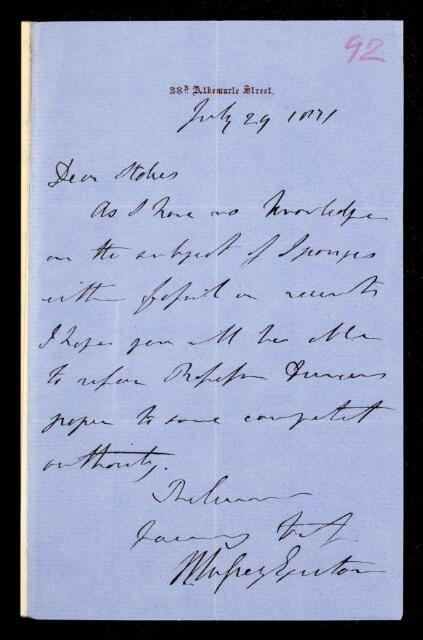 92
28B Albemarle Street.
July 29 1871
Dear Stokes
As I have no knowledge
on the subject of Sponges
either fossil or recent
I hope you will be able
to refer Professor Duncans
paper to some competent
authority.
Believe me
yours truly
M Grey Egerton